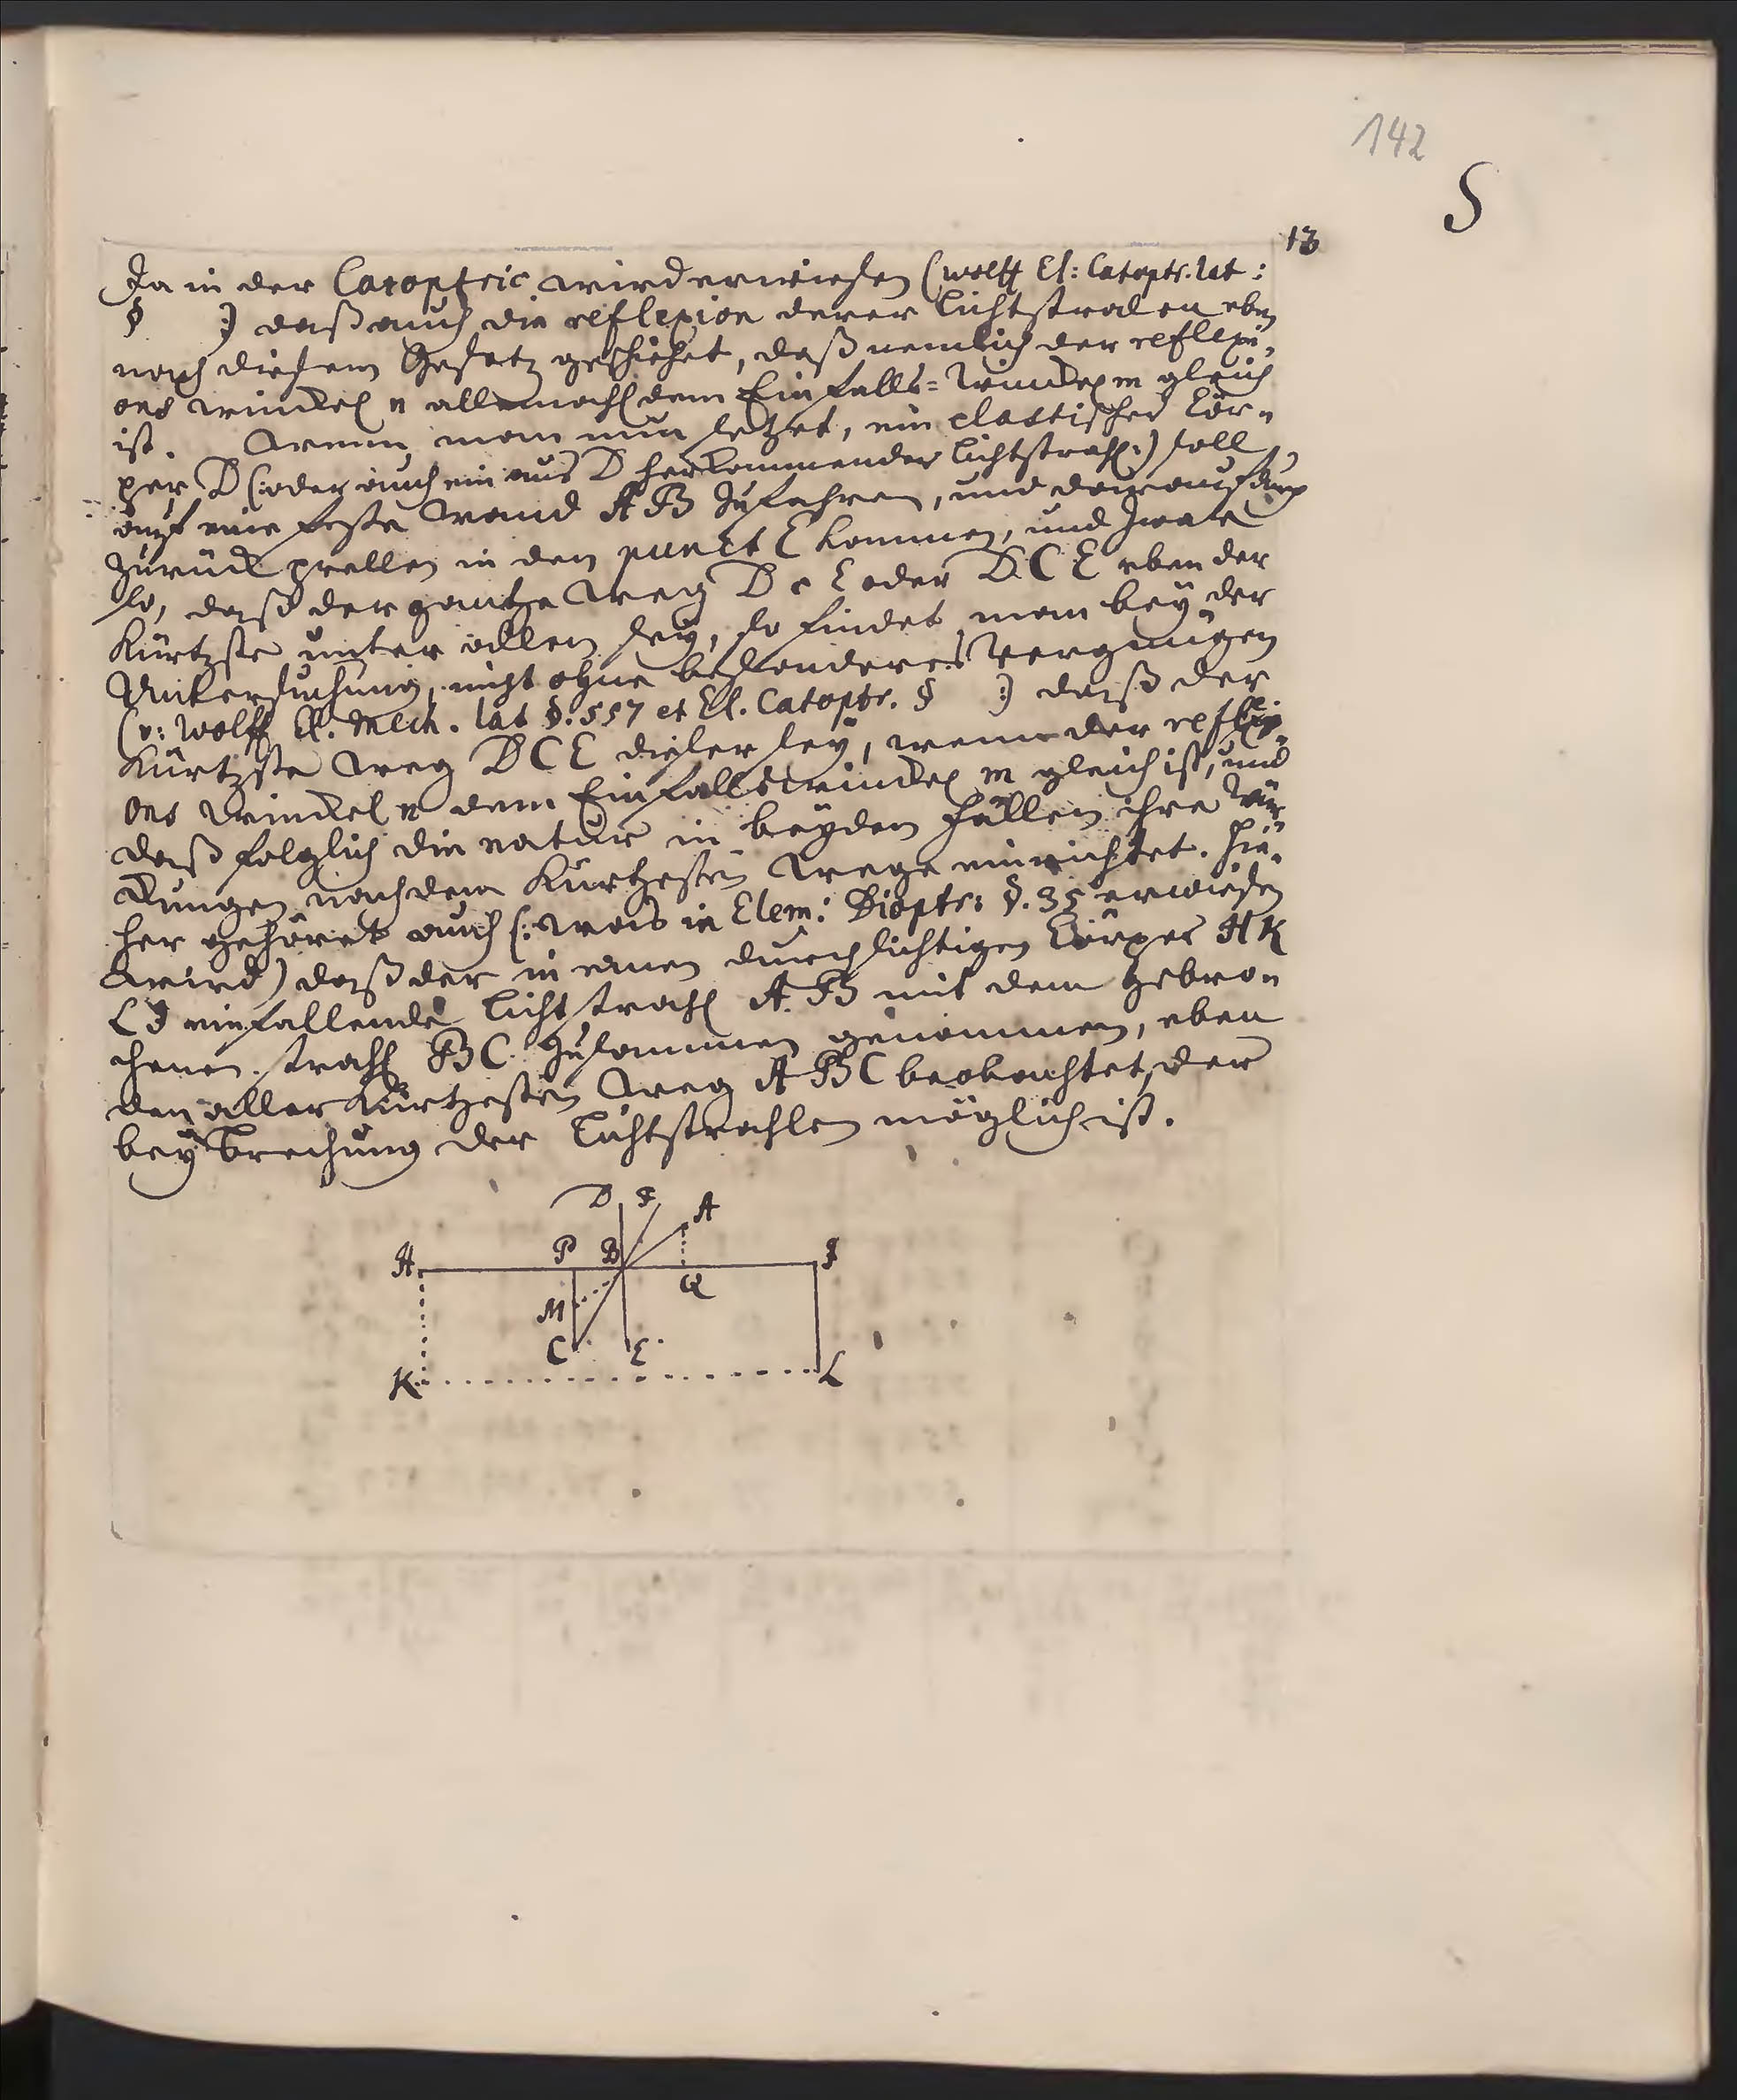 142
S
13
Da in der Catoptric wird erwiesen (Wolff El: Catoptr. lat:
§ :) daß auch die reflexion derer Lichtstralen eben
nach diesem Gesetz geschiehet, daß nemlich der reflexi-
ons winckel n allemahl dem Einfalls=Winckel m gleich
ist. Wenn man nun setzet, ein elastischer Cör-
per D (:oder auch ein aus D herkommender Lichtstrahl:) soll
auf eine feste Wand AB zufahren, und darauf durch
zurück prellen in den punct E kommen, und zwar
so, daß der gantze Weg D c E oder DCE eben der
kürtzste unter allen sey, so findet man bey der
Untersuchung, nicht ohne besonderes Vergnügen
(v: Wolff El. Mech. lat §. 557 et El. Catoptr. § :) daß der
kürtzste Weg DCE dieser sey, wenn der reflexi-
ons Winckel n dem Einfallswinckel m gleich ist, und
daß folglich die natur in beyden Fällen ihre Wür-
ckungen nach dem kürtzesten Wege einrichtet. Hie-
her gehöret auch (: was in Elem: Dioptr: §. 35 erwiesen
wird) daß der in einen durchsichtigen Cörper HK
LI einfallende Lichtstrahl A.B mit dem gebro-
chenen strahl BC zusammen genommen, eben
den aller kürtzesten Weg ABC beobachtet, der
bey Brechung der Lichtstrahlen möglich ist.
D F A
H P B I
Q
M
C E
K L